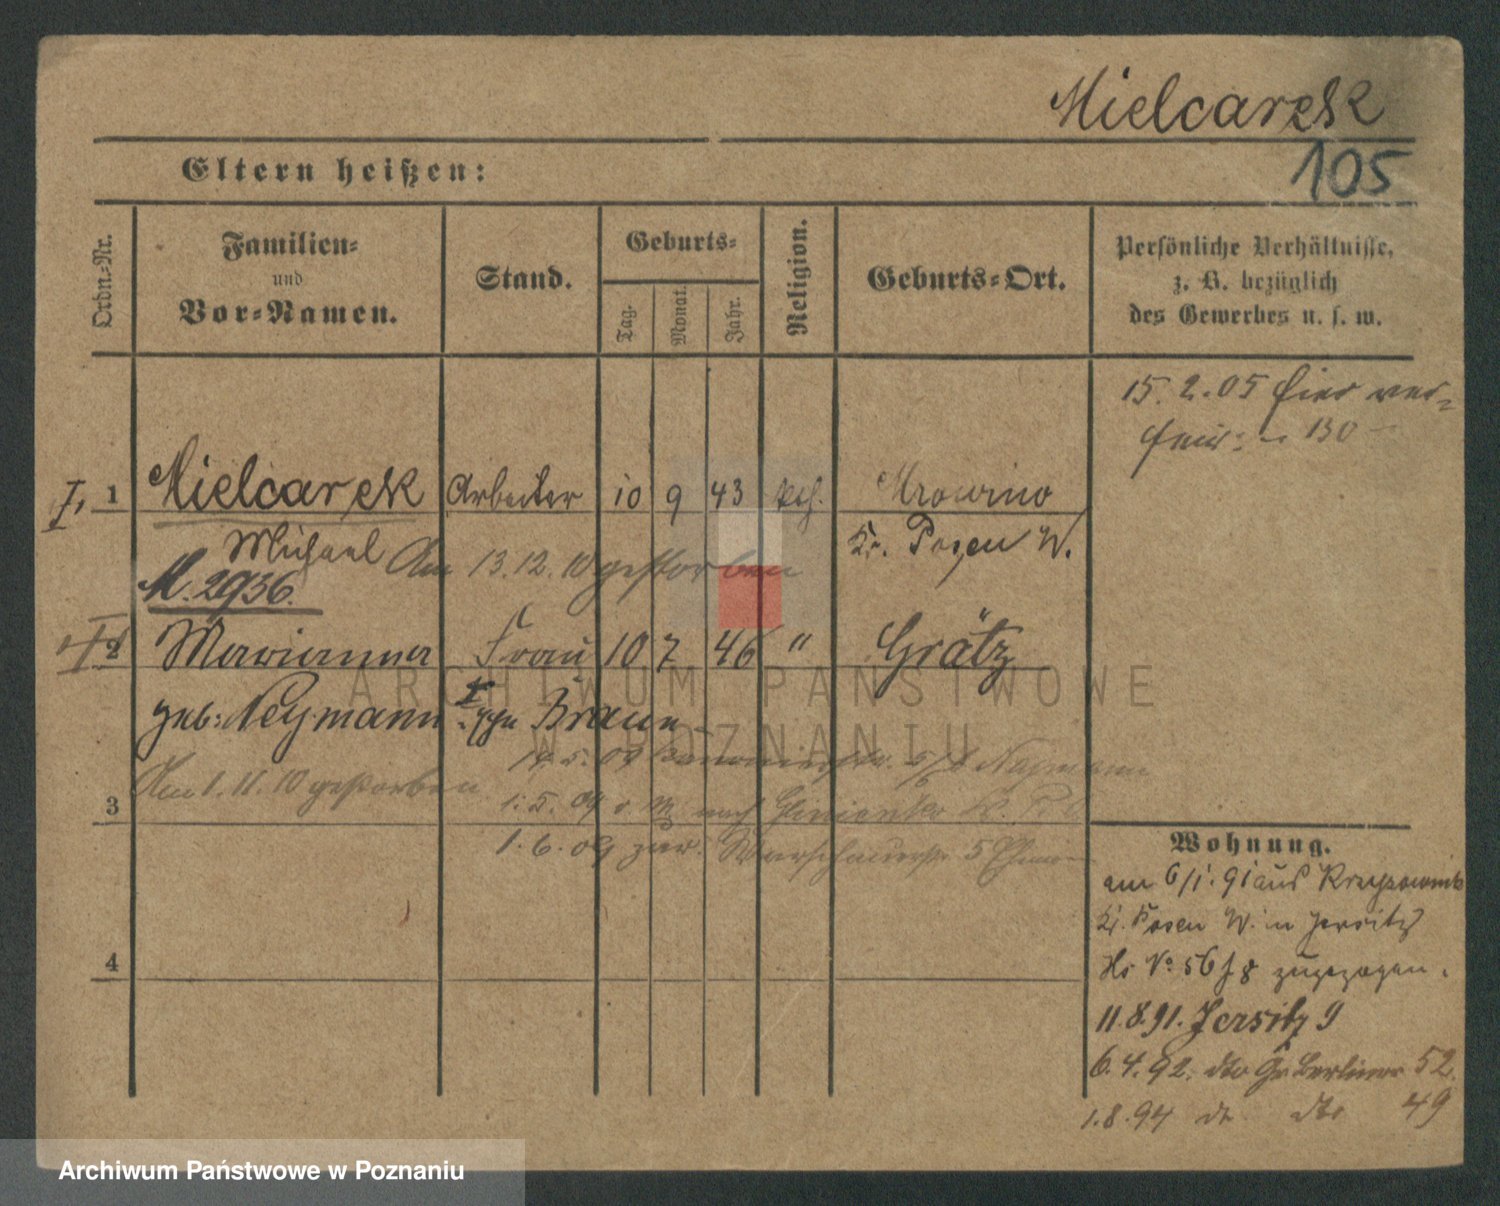 Mielcarek
105
Eltern heißen:
Ordn.-Nr.
Familien-
und
Vor-Namen.
Stand.
Geburts-
Tag.
Monat.
Jahr.
Religion.
Geburts-Ort.
Persönliche Verhältnisse,
z. B. bezüglich
des Gewerbes u. s. w.
15. 2. 05 hier ver-
130
I, 1 Mielcarek Arbeiter 10 9 43 kath. Mrowino
Michael Kr. Posen W.
Am 13.12.10 gestorben
M. 2936.
2 Marianna Frau 10 7 46 " Grätz
geb: Neymann Braun
Am 1. 11. 10 gestorben
1. 5. 09 nach
3
1. 6. 09 zur. Warschauerstr. 5
4
Wohnung.
am 6/1. 91 aus
Kr. Posen W. in Jersitz
No 56 zugezogen.
11.8.91. Jersitz 9
6. 4. 92. dto Gr Berliner 52.
1. 8. 94 dto 49
ARCHIWUM PAŃSTWOWE
W POZNANIU
Archiwum Państwowe w Poznaniu